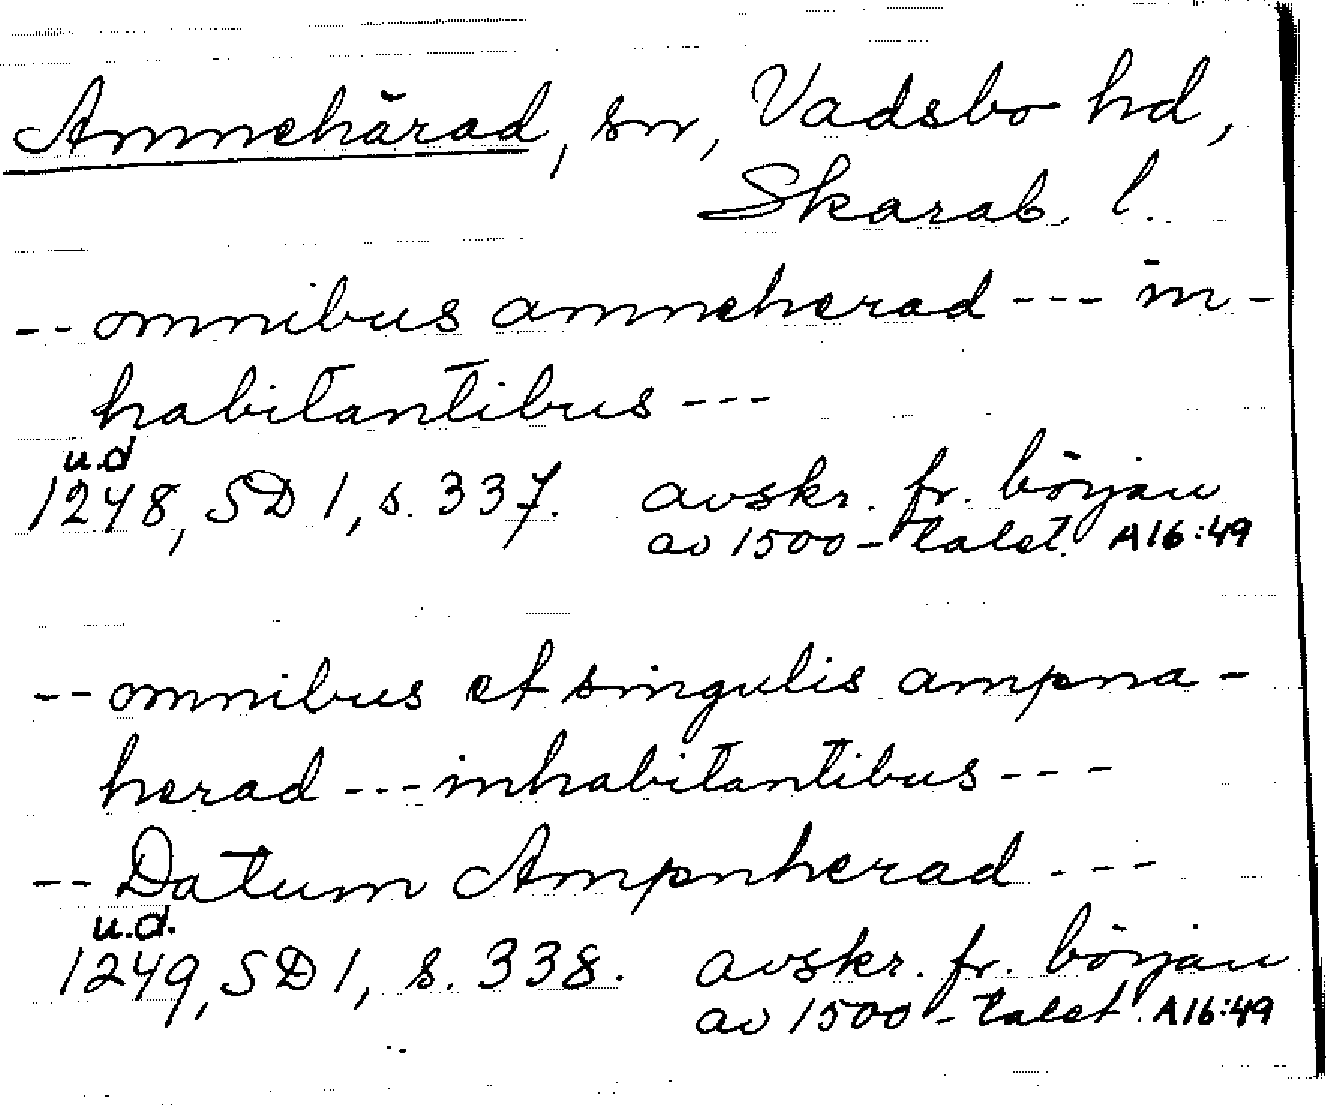 Amnehärad, sn, Vadsbo hd,
Skarab. l.
-- omnibus amneherad --- in-
habitantibus ---
u.d
1248, SD 1, s. 337. avskr. fr. början
av 1500-talet. A16:49
-- omnibus et singulis ampna-
herad --- inhabitantibus ---
-- Datum Ampnherad ---
u.d.
1249, SD 1, s. 338. avskr. fr. början
av 1500-talet. A16:49